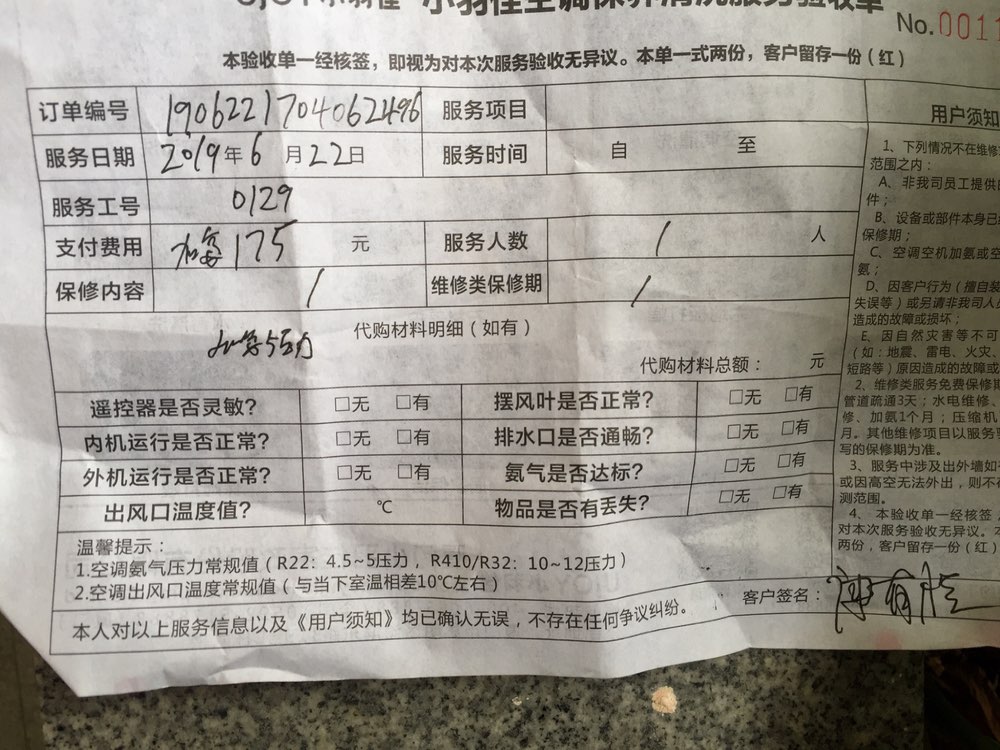 小羽佳空调保养清洗服务验收单
No.0011
本验收单一经核签，即视为对本次服务验收无异议。本单一式两份，客户留存一份（红）
订单编号 1906221704062496 服务项目
服务日期 2019年6月22日 服务时间 自 至
服务工号 0129
支付费用 175 元 服务人数 / 人
保修内容 / 维修类保修期 /
代购材料明细（如有）
代购材料总额： 元
遥控器是否灵敏？ □无 □有 摆风叶是否正常？ □无 □有
内机运行是否正常？ □无 □有 排水口是否通畅？ □无 □有
外机运行是否正常？ □无 □有 氨气是否达标？ □无 □有
出风口温度值？ ℃ 物品是否有丢失？ □无 □有
温馨提示：
1.空调氨气压力常规值（R22：4.5~5压力，R410/R32：10~12压力）
2.空调出风口温度常规值（与当下室温相差10℃左右）
客户签名：
本人对以上服务信息以及《用户须知》均已确认无误，不存在任何争议纠纷。
用户须知
1、下列情况不在维修
范围之内：
A、非我司员工提供
件；
B、设备或部件本身已
保修期；
C、空调空机加氨或空
氨；
D、因客户行为（擅自装
失误等）或另请非我司人
造成的故障或损坏；
E、因自然灾害等不可
（如：地震、雷电、火灾、
短路等）原因造成的故障或
2、维修类服务免费保修期
管道疏通3天；水电维修、
修、加氨1个月；压缩机
月。其他维修项目以服务
写的保修期为准。
3、服务中涉及出外墙如
或因高空无法外出，则不
测范围。
4、本验收单一经核签，
对本次服务验收无异议。
两份，客户留存一份（红）